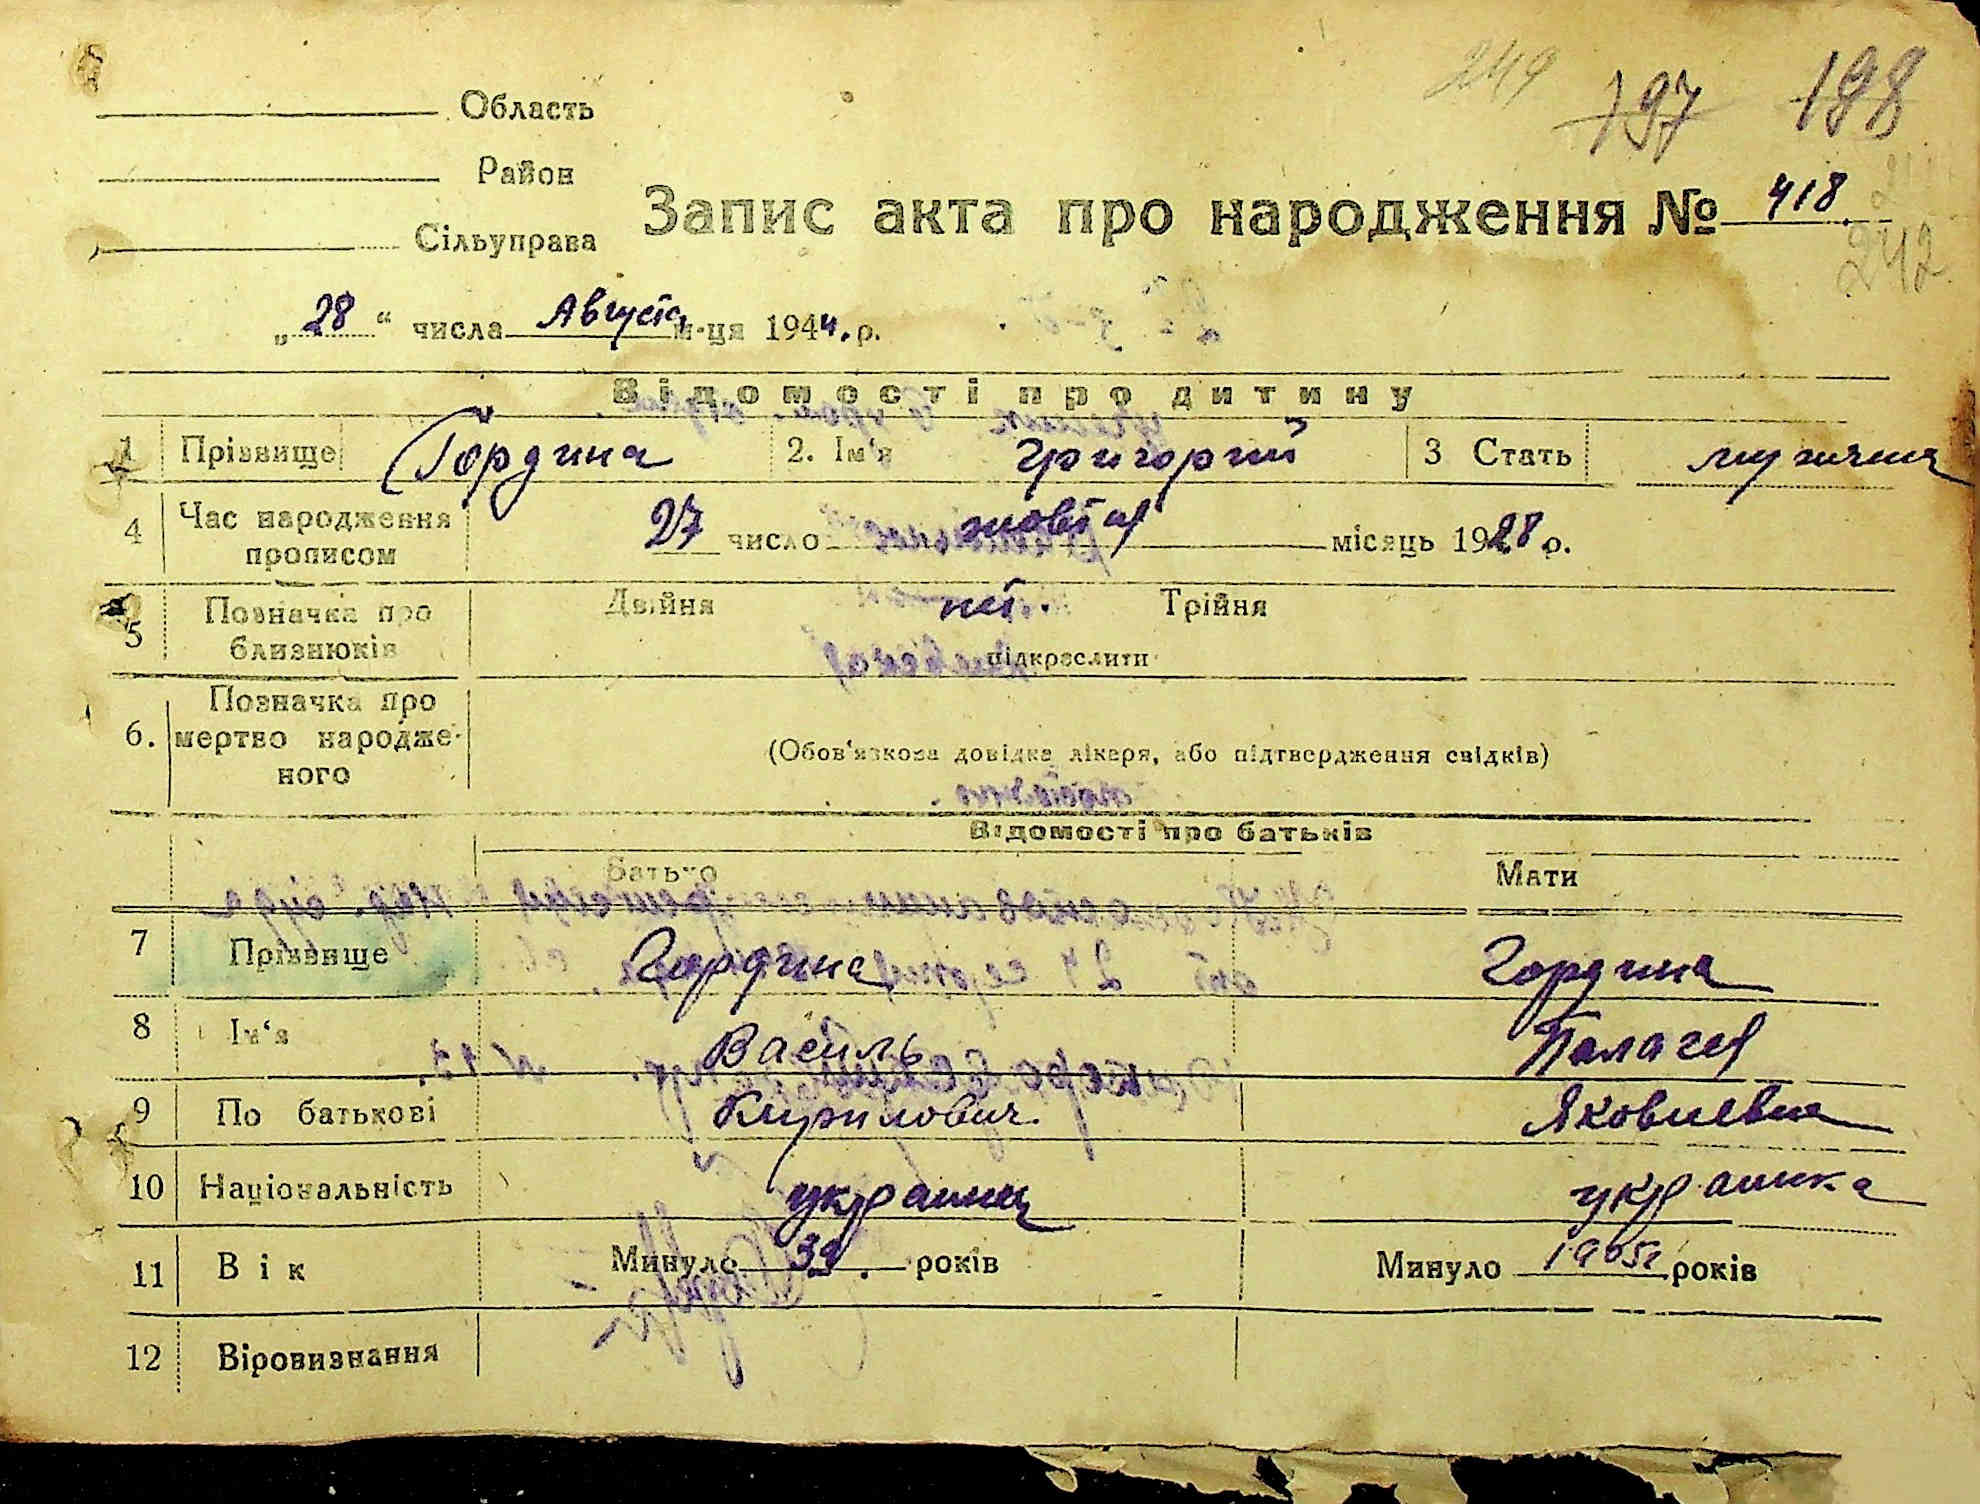 249 197 198
Область
Район
Сільуправа
Запис акта про народження № 418
242
„28“ числа Августа м-ця 1944. р.
Відомості про дитину
1 Прізвище Гордина 2. Ім'я Григорий 3 Стать мужчина
4 Час народження прописом 27 число місяць 1928 р.
5 Позначка про близнюків Двійня ні. Трійня
підкреслити
6. Позначка про мертво народженого
(Обов'язкова довідка лікаря, або підтвердження свідків)
Відомості про батьків
Батько Мати
7 Прізвище Гордина Гордина
8 Ім'я Василь Палагея
9 По батькові Кирилович. Яковлевна
10 Національність украинец украинка
11 Вік Минуло 39. років Минуло 1905 років
12 Віровизнання